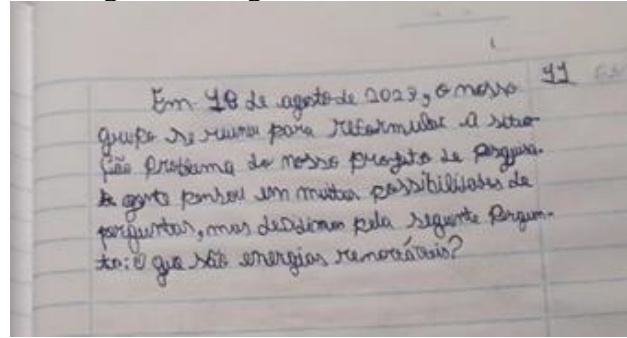 Em 18 de agosto de 2023, o nosso
grupo se reuniu para reformular a situa
ção problema do nosso progeto de pesquisa.
A gente pensou em muitas possibilidades de
perguntas, mas decidimos pela seguinte pergun-
ta: O que são energias renováveis?